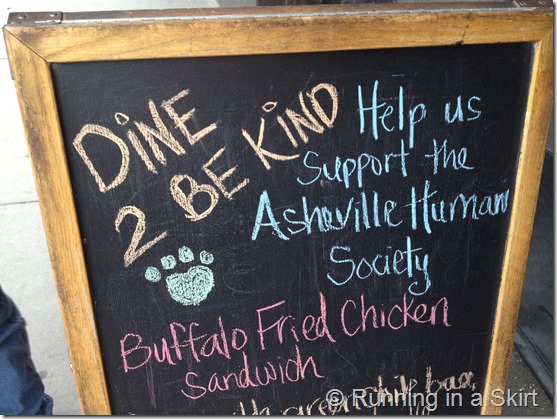 DINE
2 BE KIND
Help us
support the
Asheville Human
Society
Buffalo Fried Chicken
Sandwich
green chile
© Running in a Skirt